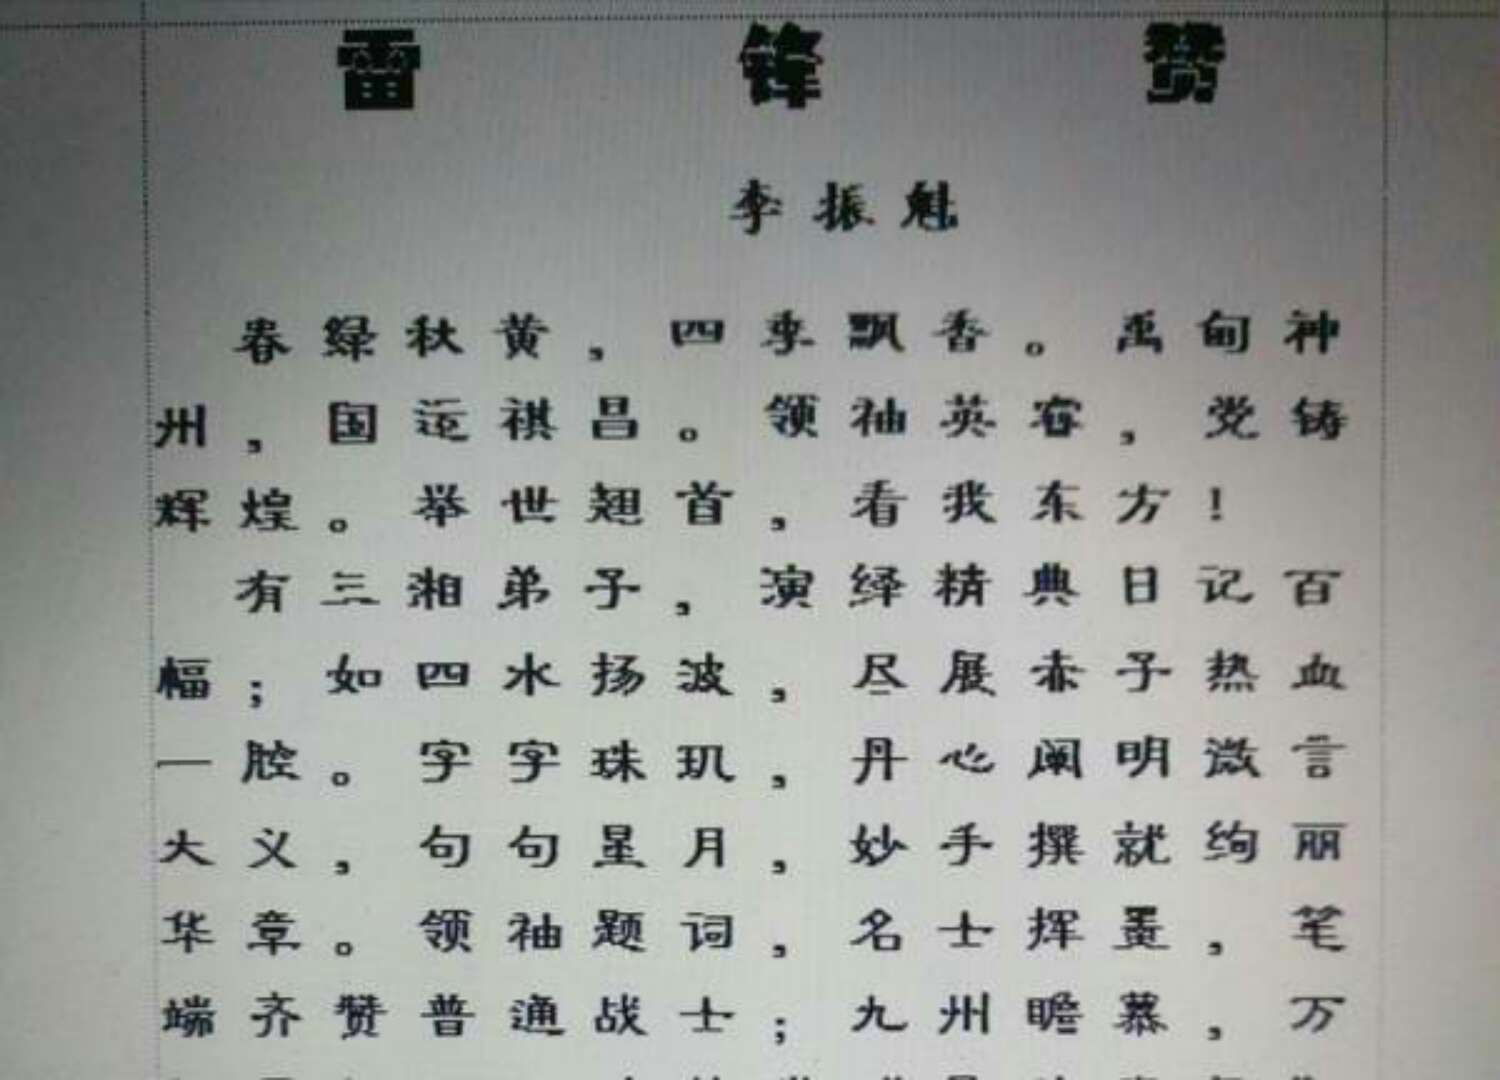 雷锋赞
李振魁
春绿秋黄，四季飘香。禹甸神
州，国运祺昌。领袖英睿，党铸
辉煌。举世翘首，看我东方！
有三湘弟子，演绎精典日记百
幅；如四水扬波，尽展赤子热血
一腔。字字珠玑，丹心阐明微言
大义，句句星月，妙手撰就绚丽
华章。领袖题词，名士挥墨，笔
端齐赞普通战士；九州瞻慕，万